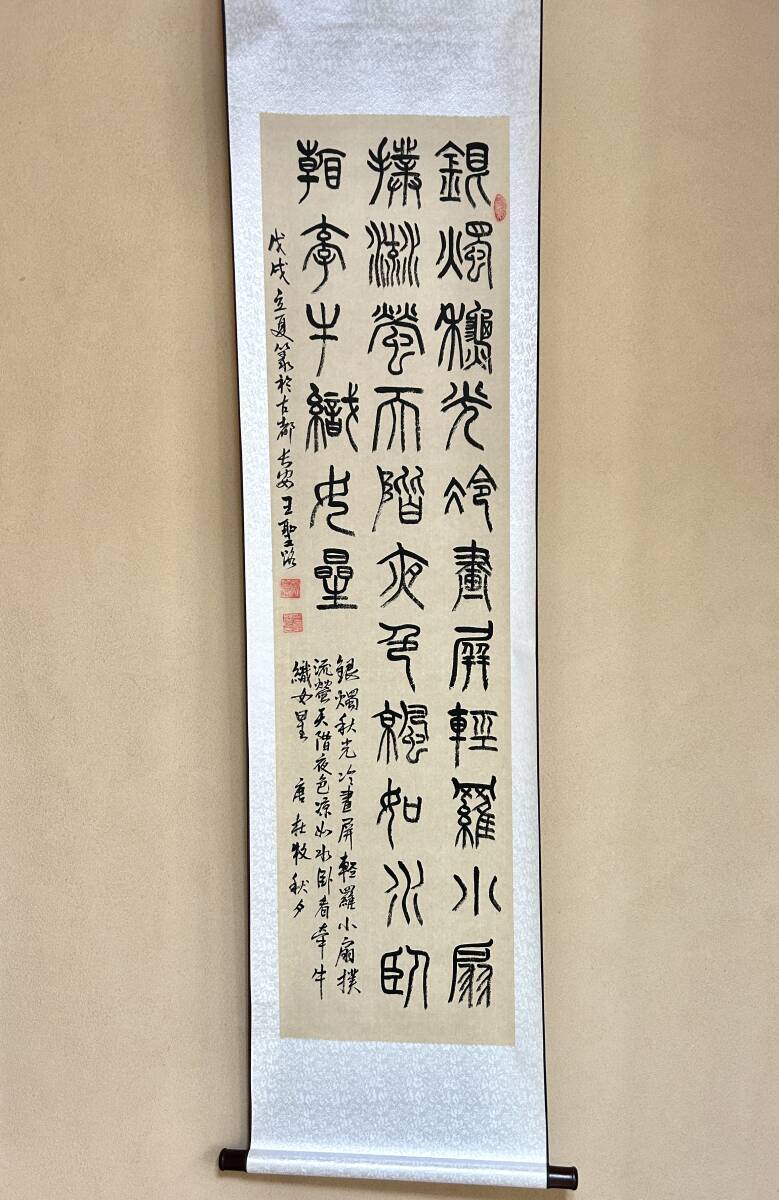 銀燭秋光冷畫屏輕羅小扇
撲流螢天階夜色涼如水臥
看牽牛織女星
銀燭秋光冷畫屏輕羅小扇撲
流螢天階夜色凉如水卧看牽牛
織女星 唐杜牧秋夕
戊戌立夏篆於古都长安王聖路